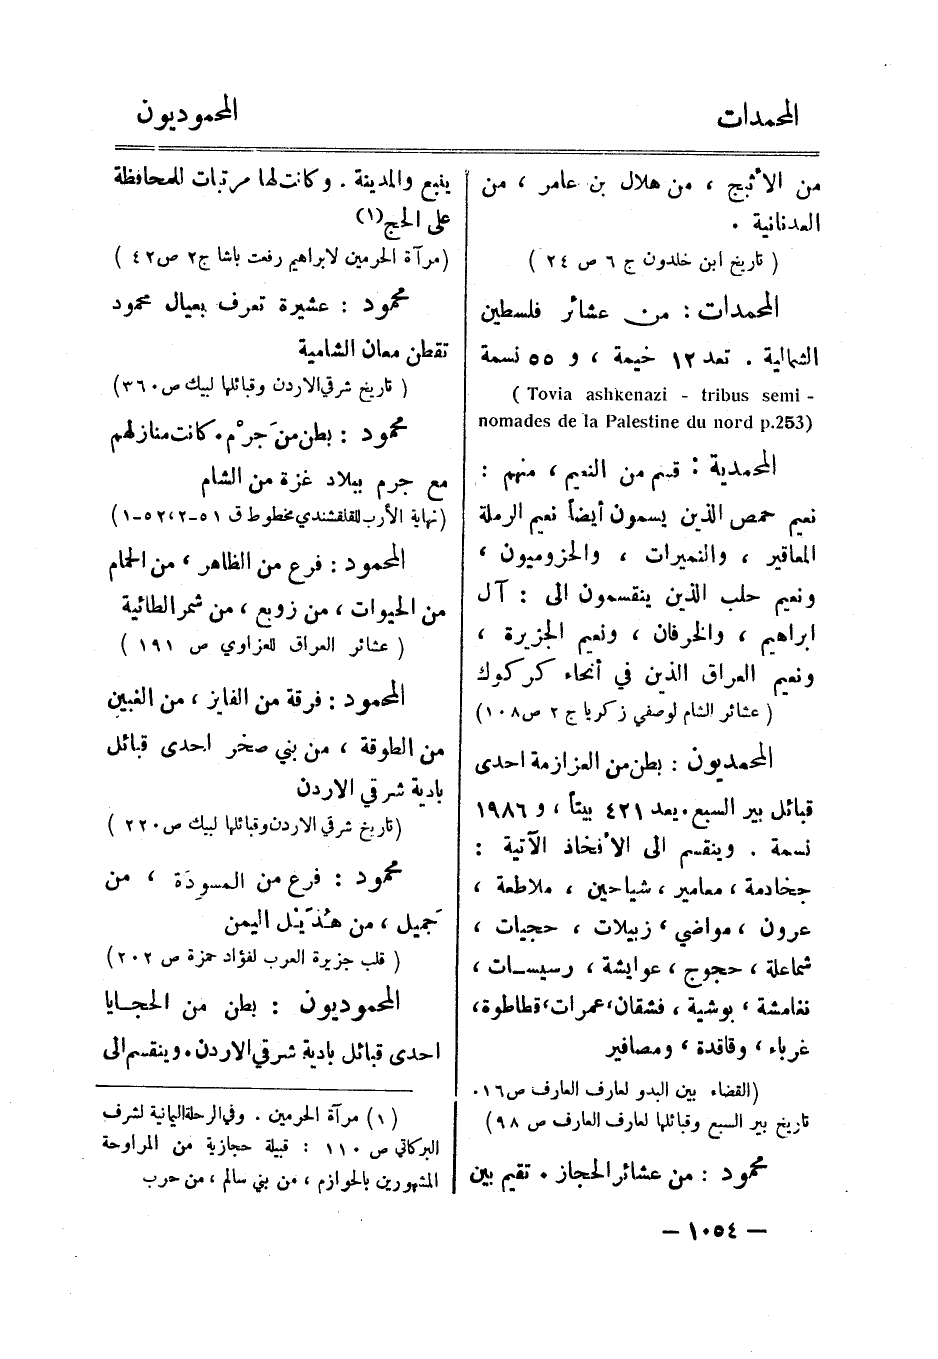 المحمدات
المحموديون
من الأثبج ، من هلال بن عامر ، من
العدنانية .
( تاريخ ابن خلدون ج ٦ ص ٢٤ )
المحمدات : من عشائر فلسطين
الشمالية . تعد ١٢ خيمة ، و ٥٥ نسمة
( Tovia ashkenazi - tribus semi -
nomades de la Palestine du nord p.253)
المحمدية : قسم من النعيم ، منهم :
نعيم حمص الذين يسمون أيضاً نعيم الرملة
المعاقير ، والنميرات ، والحزوميون ،
ونعيم حلب الذين ينقسمون الى : آل
ابراهيم ، والخرفان ، ونعيم الجزيرة ،
ونعيم العراق الذين في أنحاء كركوك
( عشائر الشام لوصفي زكريا ج ٢ ص ١٠٨)
المحمديون : بطن من العزازمة احدى
قبائل بير السبع . يعد ٤٢١ بيتاً ، و ١٩٨٦
نسمة . وينقسم الى الأفخاذ الآتية :
جخادمة ، معامير ، شياحين ، ملاطعة ،
عرون ، مواضي ، زبيلات ، حجيات ،
شماعلة ، حجوج ، عوايشة ، رسيسات ،
نغامشة ، بوشية ، فشقان ، عمرات ، قطاطوة ،
غرباء ، وقاقدة ، ومصافير
(القضاء بين البدو لعارف العارف ص ١٦٠
تاريخ بير السبع وقبائلها لعارف العارف ص ٩٨)
محمود : من عشائر الحجاز . تقيم بين
ينبع والمدينة . وكانت لها مرتبات للمحافظة
على الحج (١)
(مرآة الحرمين لابراهيم رفعت باشا ج ٢ ص ٤٢ )
محمود : عشيرة تعرف بعيال محمود
تقطن معان الشامية
( تاريخ شرقي الاردن وقبائلها لبيك ص ٣٦٠)
محمود : بطن من جَرْم . كانت منازلهم
مع جرم ببلاد غزة من الشام
(نهاية الأرب للقلقشندي مخطوط ق ٥١-٢ ، ٥٢-١)
المحمود : فرع من الظاهر ، من الحمام
من الحيوات ، من زوبع ، من شمر الطائية
( عشائر العراق للعزاوي ص ١٩١ )
المحمود : فرقة من الفايز ، من الغبين
من الطوقة ، من بني صخر احدى قبائل
بادية شرقي الاردن
(تاريخ شرقي الاردن وقبائلها لبيك ص ٢٢٠ )
محمود : فرع من المسودَة ، من
جَميل ، من هُذَيْل اليمن
( قلب جزيرة العرب لفؤاد حمزة ص ٢٠٢ )
المحموديون : بطن من الحجايا
احدى قبائل بادية شرقي الاردن . وينقسم الى
(١) مرآة الحرمين . وفي الرحلة اليمانية لشرف
البركاتي ص ١١٠ : قبيلة حجازية من المراوحة
المشهورين بالحوازم ، من بني سالم ، من حرب
— ١٠٥٤ —